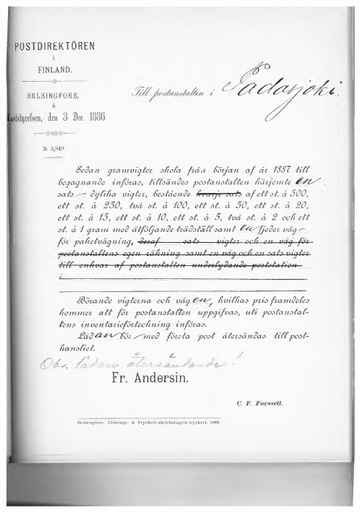 POSTDIREKTÖREN
i
FINLAND.
HELSINGFORS,
å
den 3 Dec. 1886.
Till postanstalten i Padasjoki.
№ 3,849.
Sedan gramvigter skola från början af år 1887 till
begagnande införas, tillsändes postanstalten härjemte en
sats dylika vigter, bestående hvarje sats af ett st. à 500,
ett st. à 250, två st. à 100, ett st. à 50, ett st. à 20,
ett st. à 15, ett st. à 10, ett st. à 5, två st. à 2 och ett
st. à 1 gram med åtföljande trädställ samt en fjeder våg
för paketvägning, deraf sats vigter och en våg för
postanstaltens egen räkning samt en våg och en sats vigter
till enhvar af postanstalten underlydande poststation
i
Börande vigterna och vågen, hvilkas pris framdeles
kommer att för postanstalten uppgifvas, uti postanstal-
tens inventarieförteckning införas.
Lådan bör med första post återsändas till post-
kansliet.
Obs. lådans återsändande!
Fr. Andersin.
C. F. Forssell.
Helsingfors, Tidnings- & Tryckeri-aktiebolagets tryckeri, 1886.